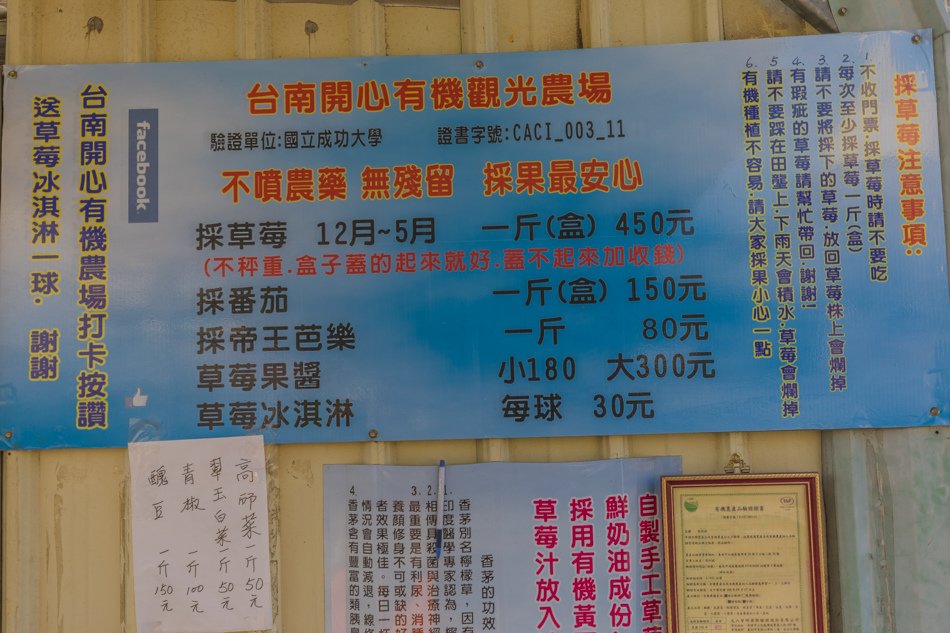 台南開心有機觀光農場
驗證單位:國立成功大學 證書字號:CACI_003_11
不噴農藥 無殘留 採果最安心
採草莓 12月~5月 一斤(盒) 450元
(不秤重.盒子蓋的起來就好.蓋不起來加收錢)
採番茄 一斤(盒) 150元
採帝王芭樂 一斤 80元
草莓果醬 小180 大300元
草莓冰淇淋 每球 30元
採草莓注意事項:
1.不收門票.採草莓時請不要吃
2.每次至少採草莓一斤(盒)
3.請不要將採下的草莓.放回草莓株上會爛掉
4.有瑕疵的草莓請幫忙帶回.謝謝!
5.請不要踩在田壟上.下雨天會積水.草莓會爛掉
6.有機種植不容易.請大家採果小心一點
facebook
台南開心有機農場打卡按讚
送草莓冰淇淋一球. 謝謝
高郎菜一斤50元
翠玉白菜一斤50元
青椒 一斤100元
醜豆 一斤150元
自製手工草
鮮奶油成份
採用有機黃
草莓汁放入
香茅的功效
1.香茅別名檸檬草,因有
印度醫學專家認為,
2.相傳具殺菌與治療神經
3.最重要是有利尿、消腫
養顏修身不可或缺的好
者效果極佳。每日一杯
情況會自動減退,
4.香茅含有豐富的類胰島
有機農產品驗證證書